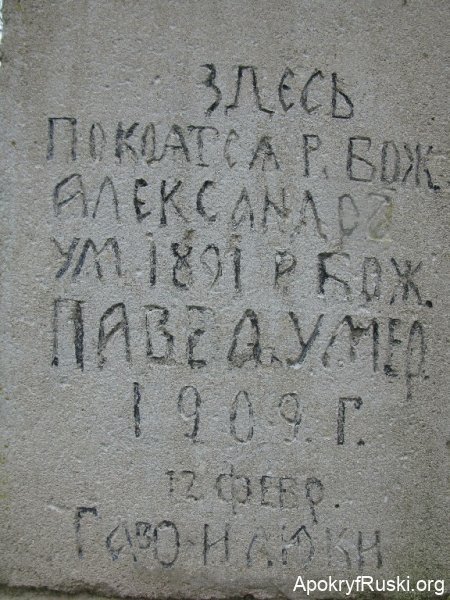 ЗДЕСЬ
ПОКОАТСА Р. БОЖ.
АЛЕКСАНДРЪ
УМ. 1891 Р. БОЖ.
ПАВЕЛ. УМЕР.
1909. Г.
12 ФЕВР.
ApokryfRuski.org